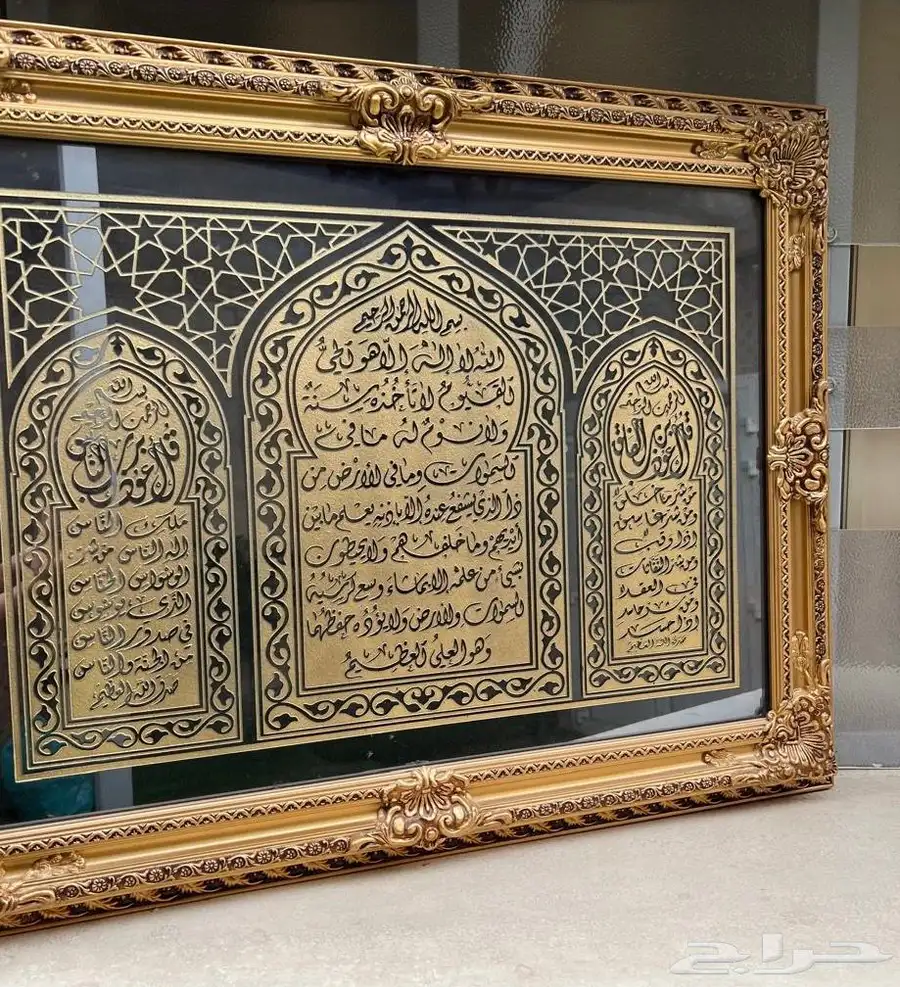 بسم الله الرحمن الرحيم
قل اعوذ برب الفلق
من شر ما خلق
ومن شر غاسق
اذا وقب
ومن شر النفاثات
في العقد
ومن شر حاسد
اذا حسد
صدق الله العظيم
بسم الله الرحمن الرحيم
الله لا اله الا هو الحي
القيوم لا تأخذه سنة
ولا نوم له ما في
السموات وما في الأرض من
ذا الذي يشفع عنده الا باذنه يعلم ما بين
أيديهم وما خلفهم ولا يحيطون
بشيء من علمه الا بما شاء وسع كرسيه
السموات والارض ولا يؤده حفظهما
وهو العلي العظيم
بسم الله
الرحمن الرحيم
قل اعوذ برب الناس
ملك الناس
اله الناس من شر
الوسواس الخناس
الذي يوسوس
في صدور الناس
من الجنة والناس
صدق الله العظيم
حراج